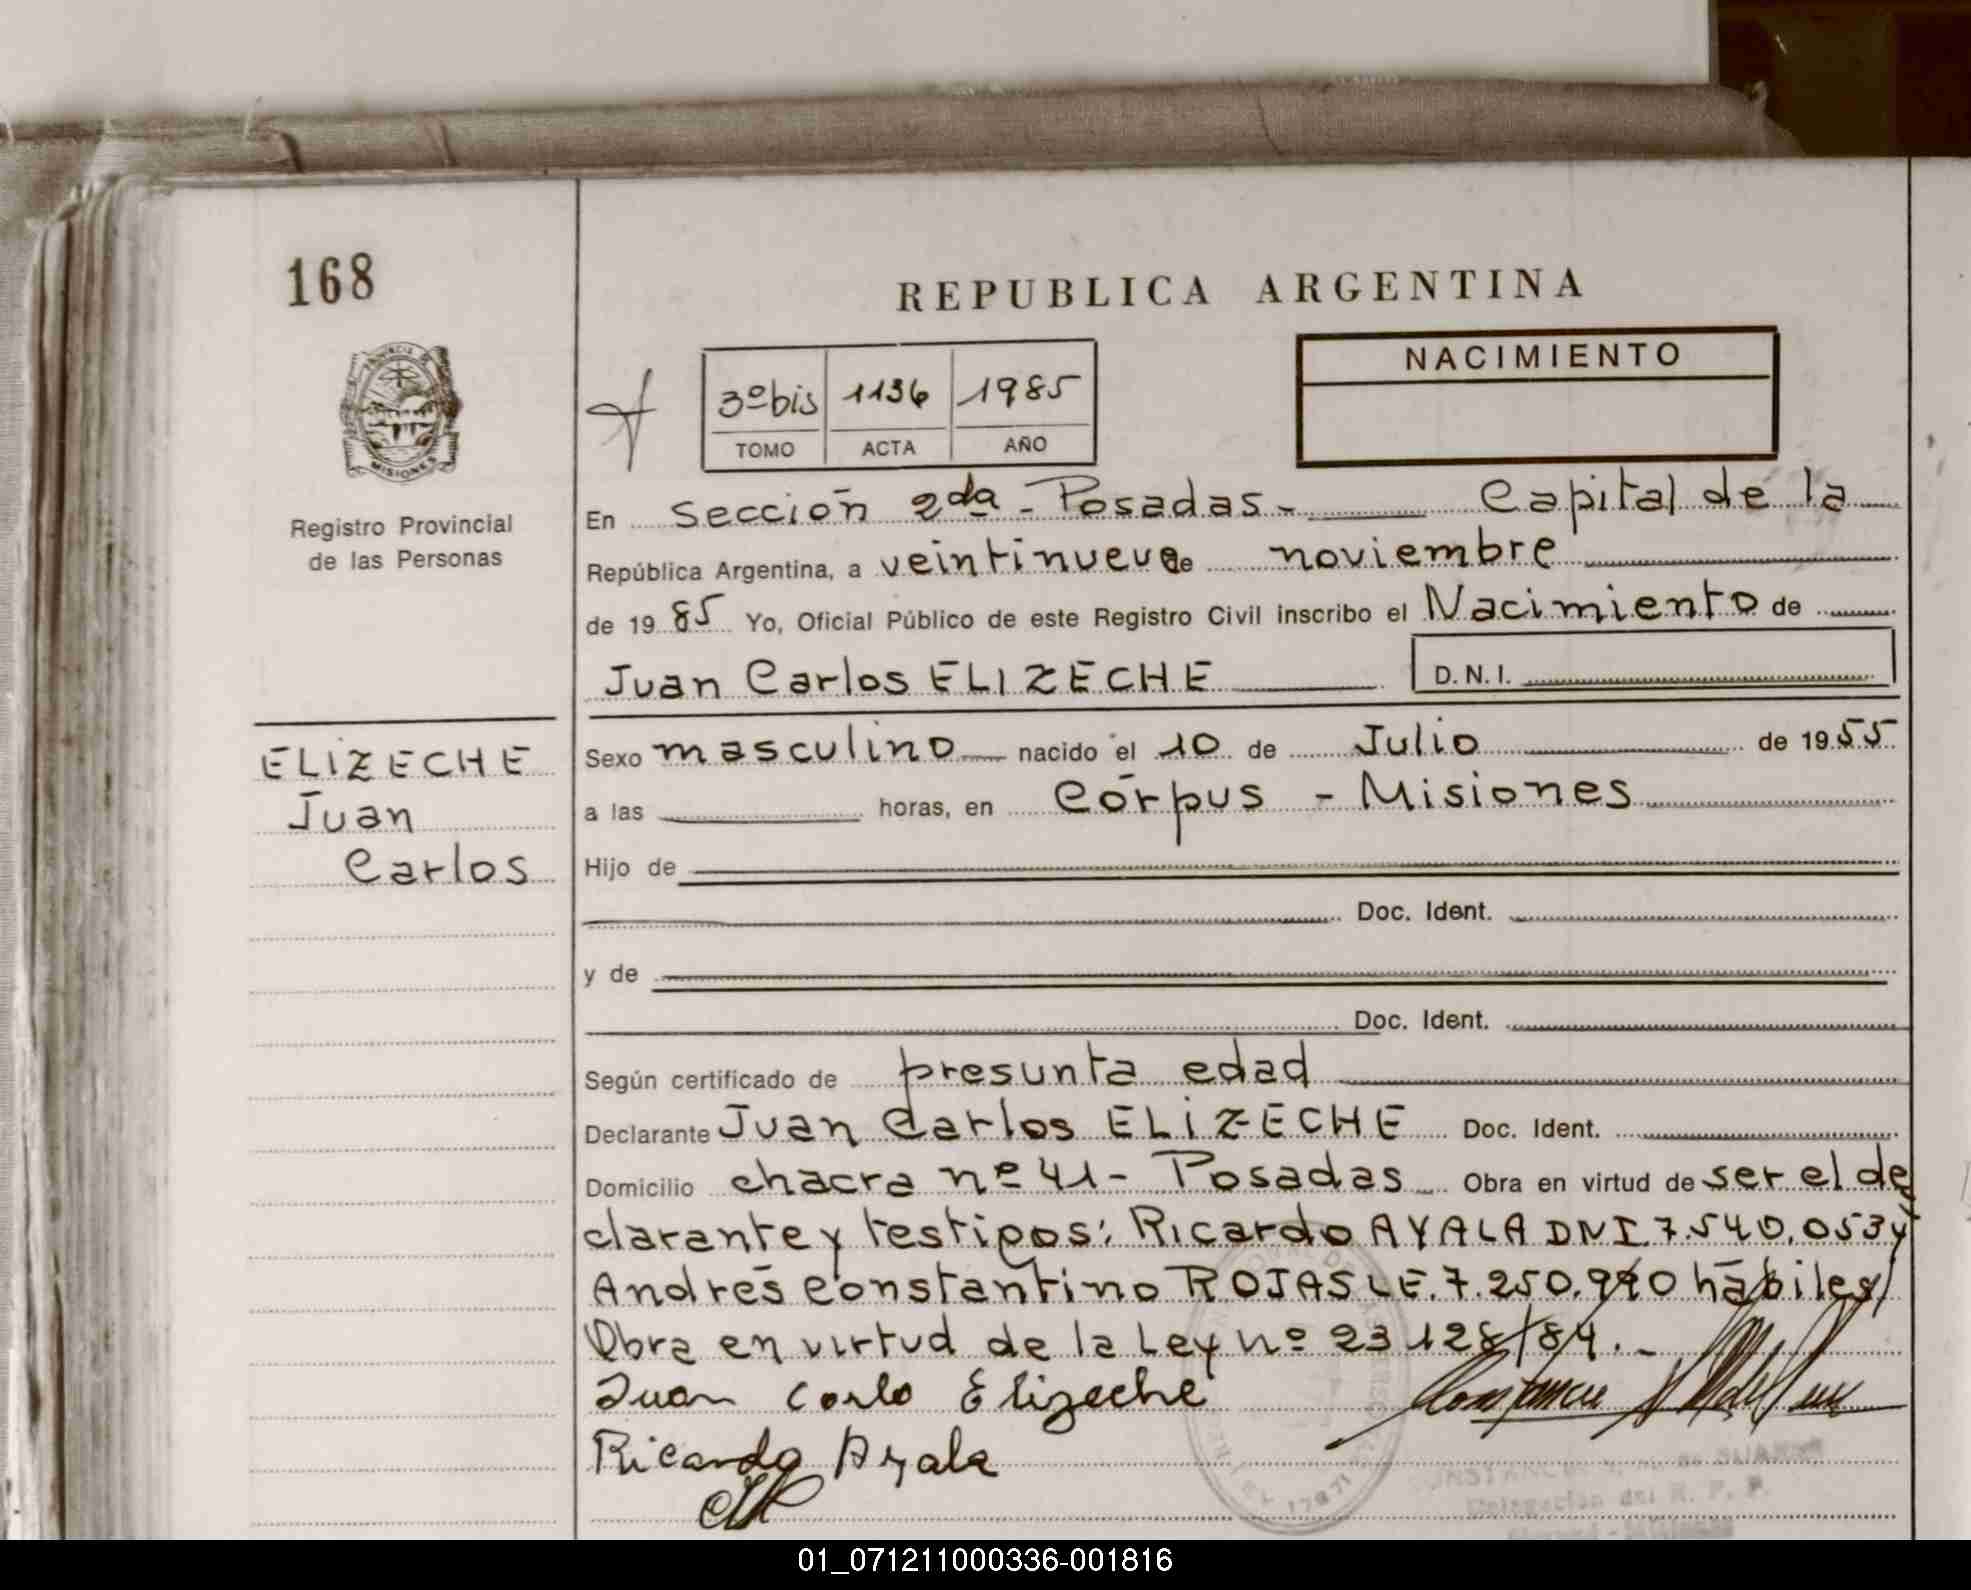 168
REPUBLICA ARGENTINA
PROVINCIA DE
MISIONES
3º bis 1136 1985
TOMO ACTA AÑO
NACIMIENTO
Registro Provincial
de las Personas
En Sección 2da - Posadas - Capital de la
República Argentina, a veintinueve de noviembre
de 1985 Yo, Oficial Público de este Registro Civil inscribo el Nacimiento de
Juan Carlos ELIZECHE D.N.I.
ELIZECHE
Juan
Carlos
Sexo masculino nacido el 10 de Julio de 1955
a las horas, en Córpus - Misiones
Hijo de
Doc. Ident.
y de
Doc. Ident.
Según certificado de presunta edad
Declarante Juan Carlos ELIZECHE Doc. Ident.
Domicilio chacra nº 41 - Posadas Obra en virtud de ser el de
clarante y testigos: Ricardo AYALA DNI 7.540.053 y
Andrés Constantino ROJAS LE. 7.250.990 hábiles/
Obra en virtud de la Ley nº 23128/84.-
Juan Carlo Elizeche
Ricardo Ayala
Delegación del R. P. P.
01_071211000336-001816